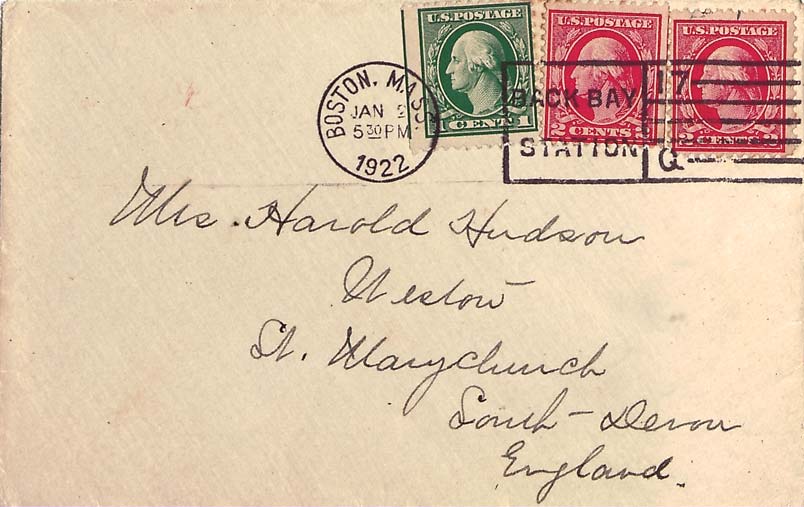 U.S. POSTAGE
1 CENTS 1
U.S. POSTAGE
2 CENTS 2
U.S. POSTAGE
2 CENTS 2
BOSTON, MASS.
JAN 2
5 30 PM
1922
BACK BAY
STATION
17
Q
Mrs. Harold Hudson
Westow
St. Marychurch
South-Devon
England.